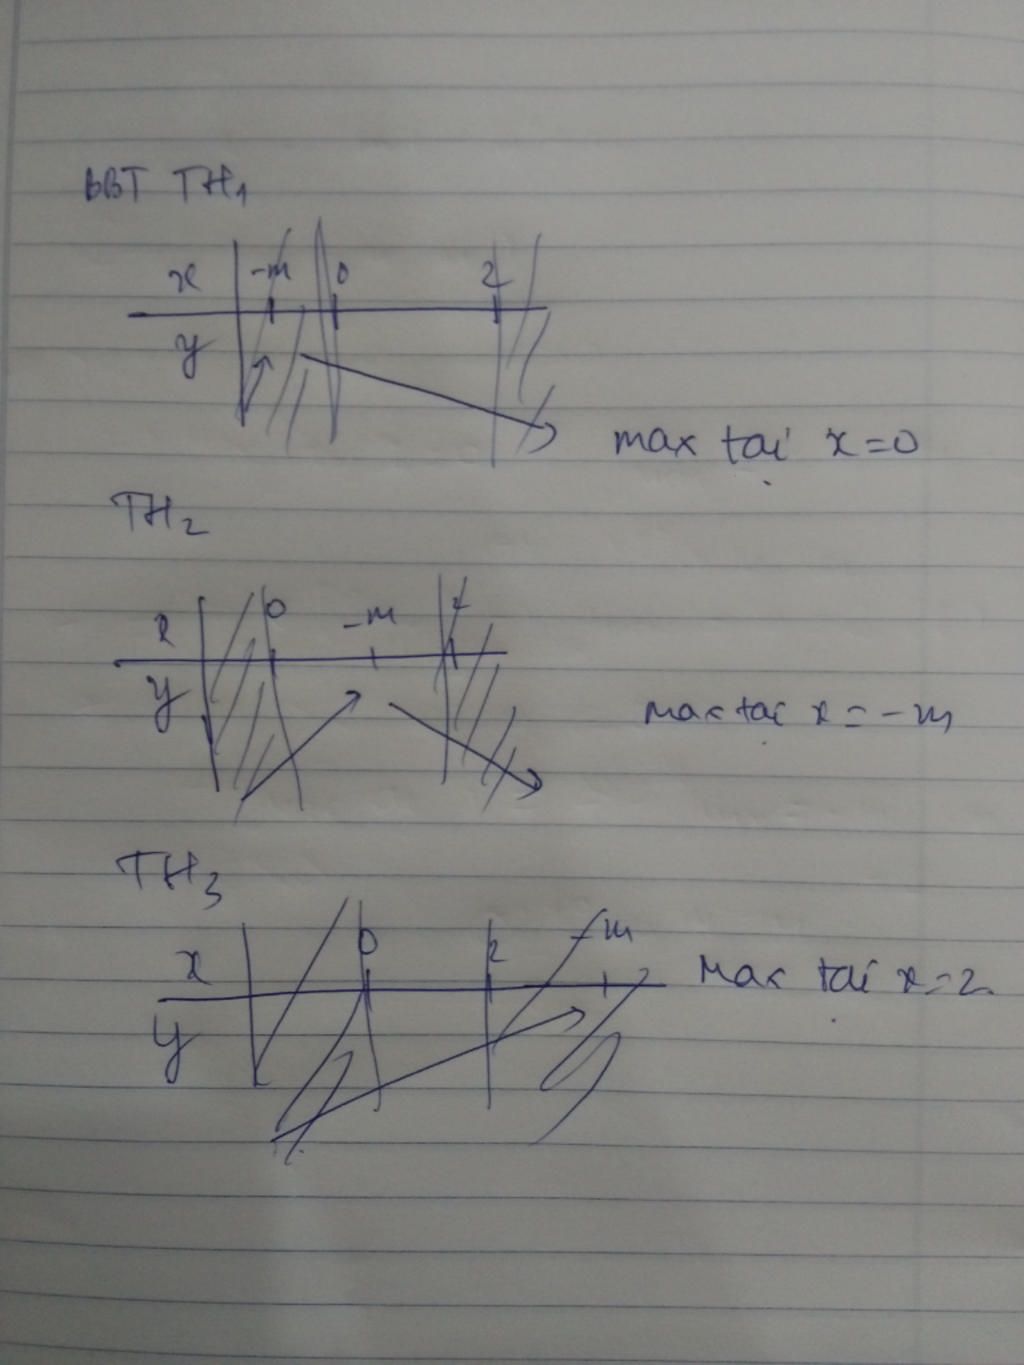 BBT TH1
x -m 0 2
y
max tại x=0
TH2
x 0 -m 2
y
max tại x = -m
TH3
x 0 2 -m
y
Max tại x=2